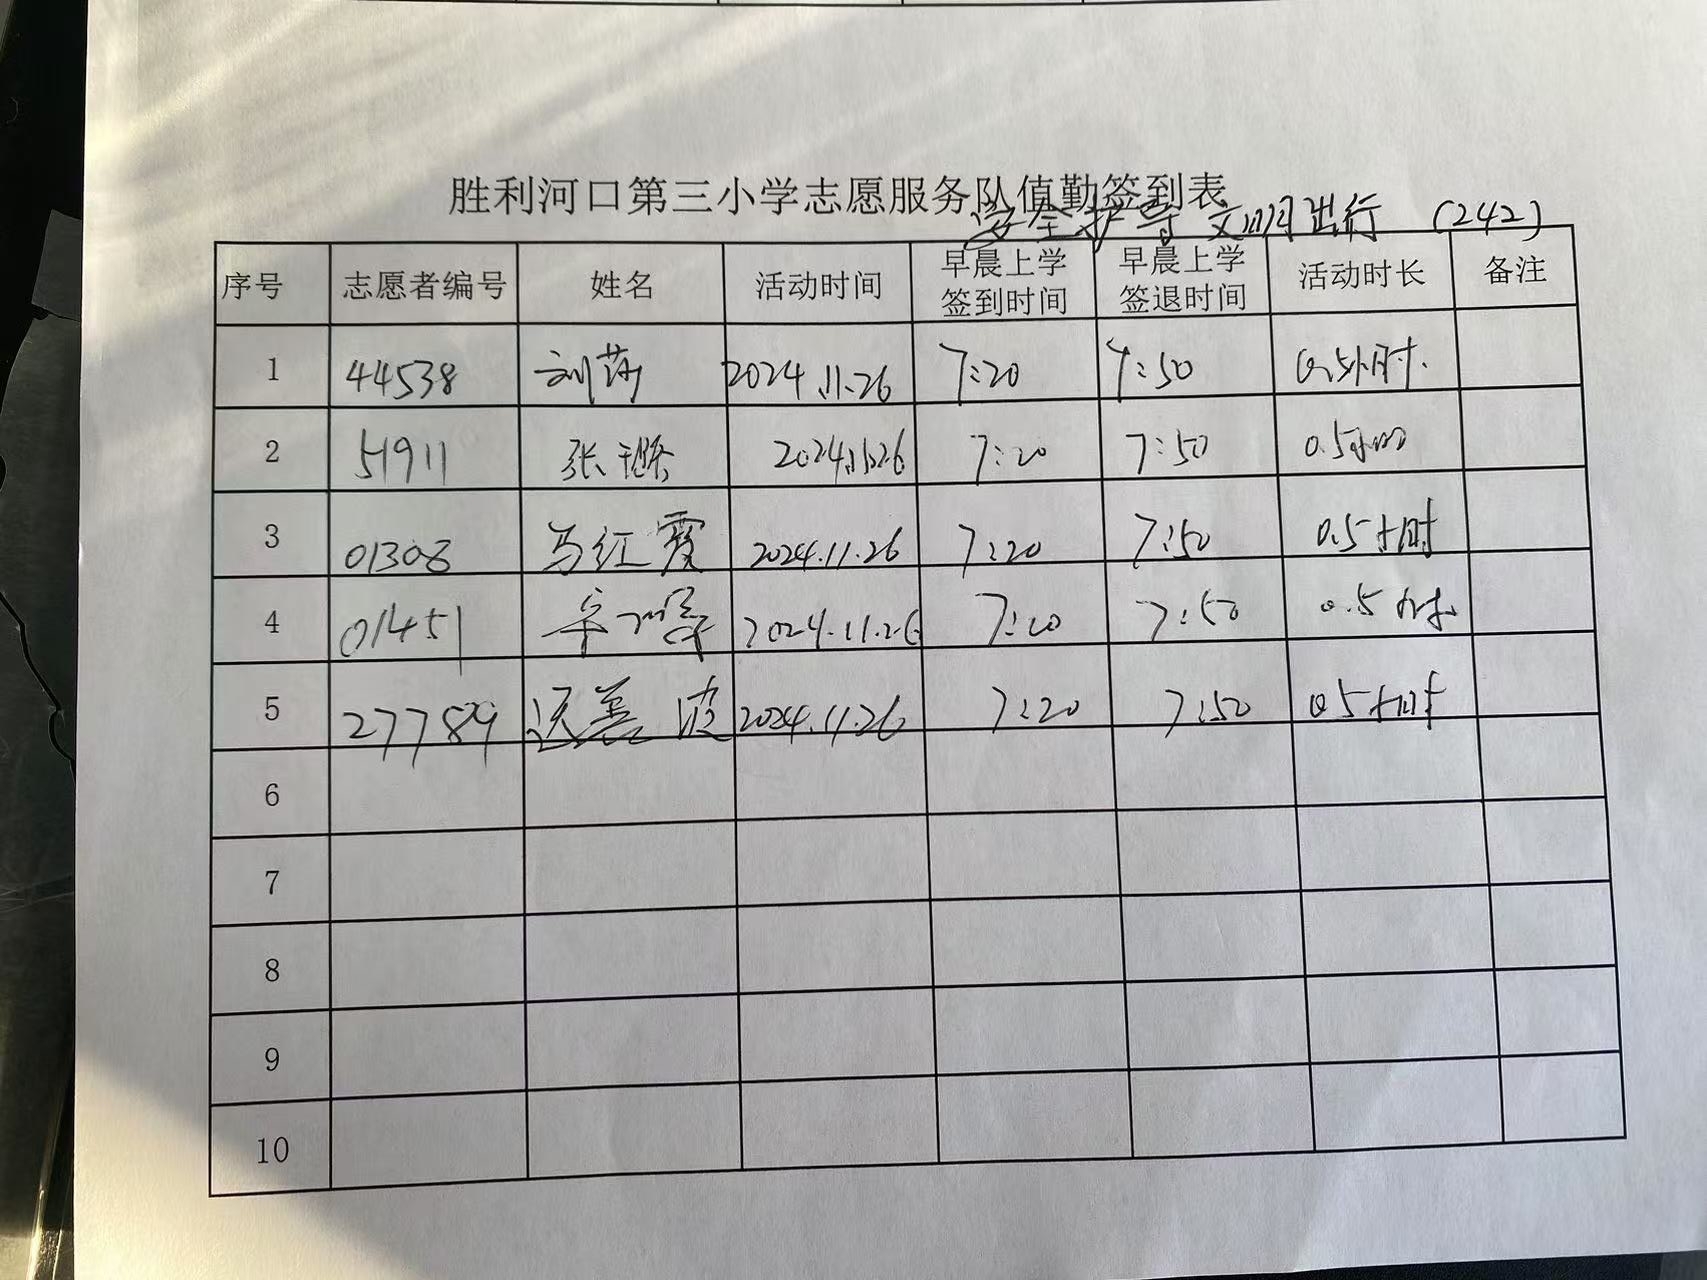 胜利河口第三小学志愿服务队值勤签到表
安全护导 文明出行 (242)
序号 志愿者编号 姓名 活动时间 早晨上学签到时间 早晨上学签退时间 活动时长 备注
1 44538 刘莎 2024.11.26 7:20 7:50 0.5小时.
2 51911 张 2024.11.26 7:20 7:50 0.5小时
3 01308 马红霞 2024.11.26 7:20 7:50 0.5小时
4 01451 2024.11.26 7:20 7:50 0.5小时
5 27789 善波 2024.11.26 7:20 7:50 0.5小时
6
7
8
9
10